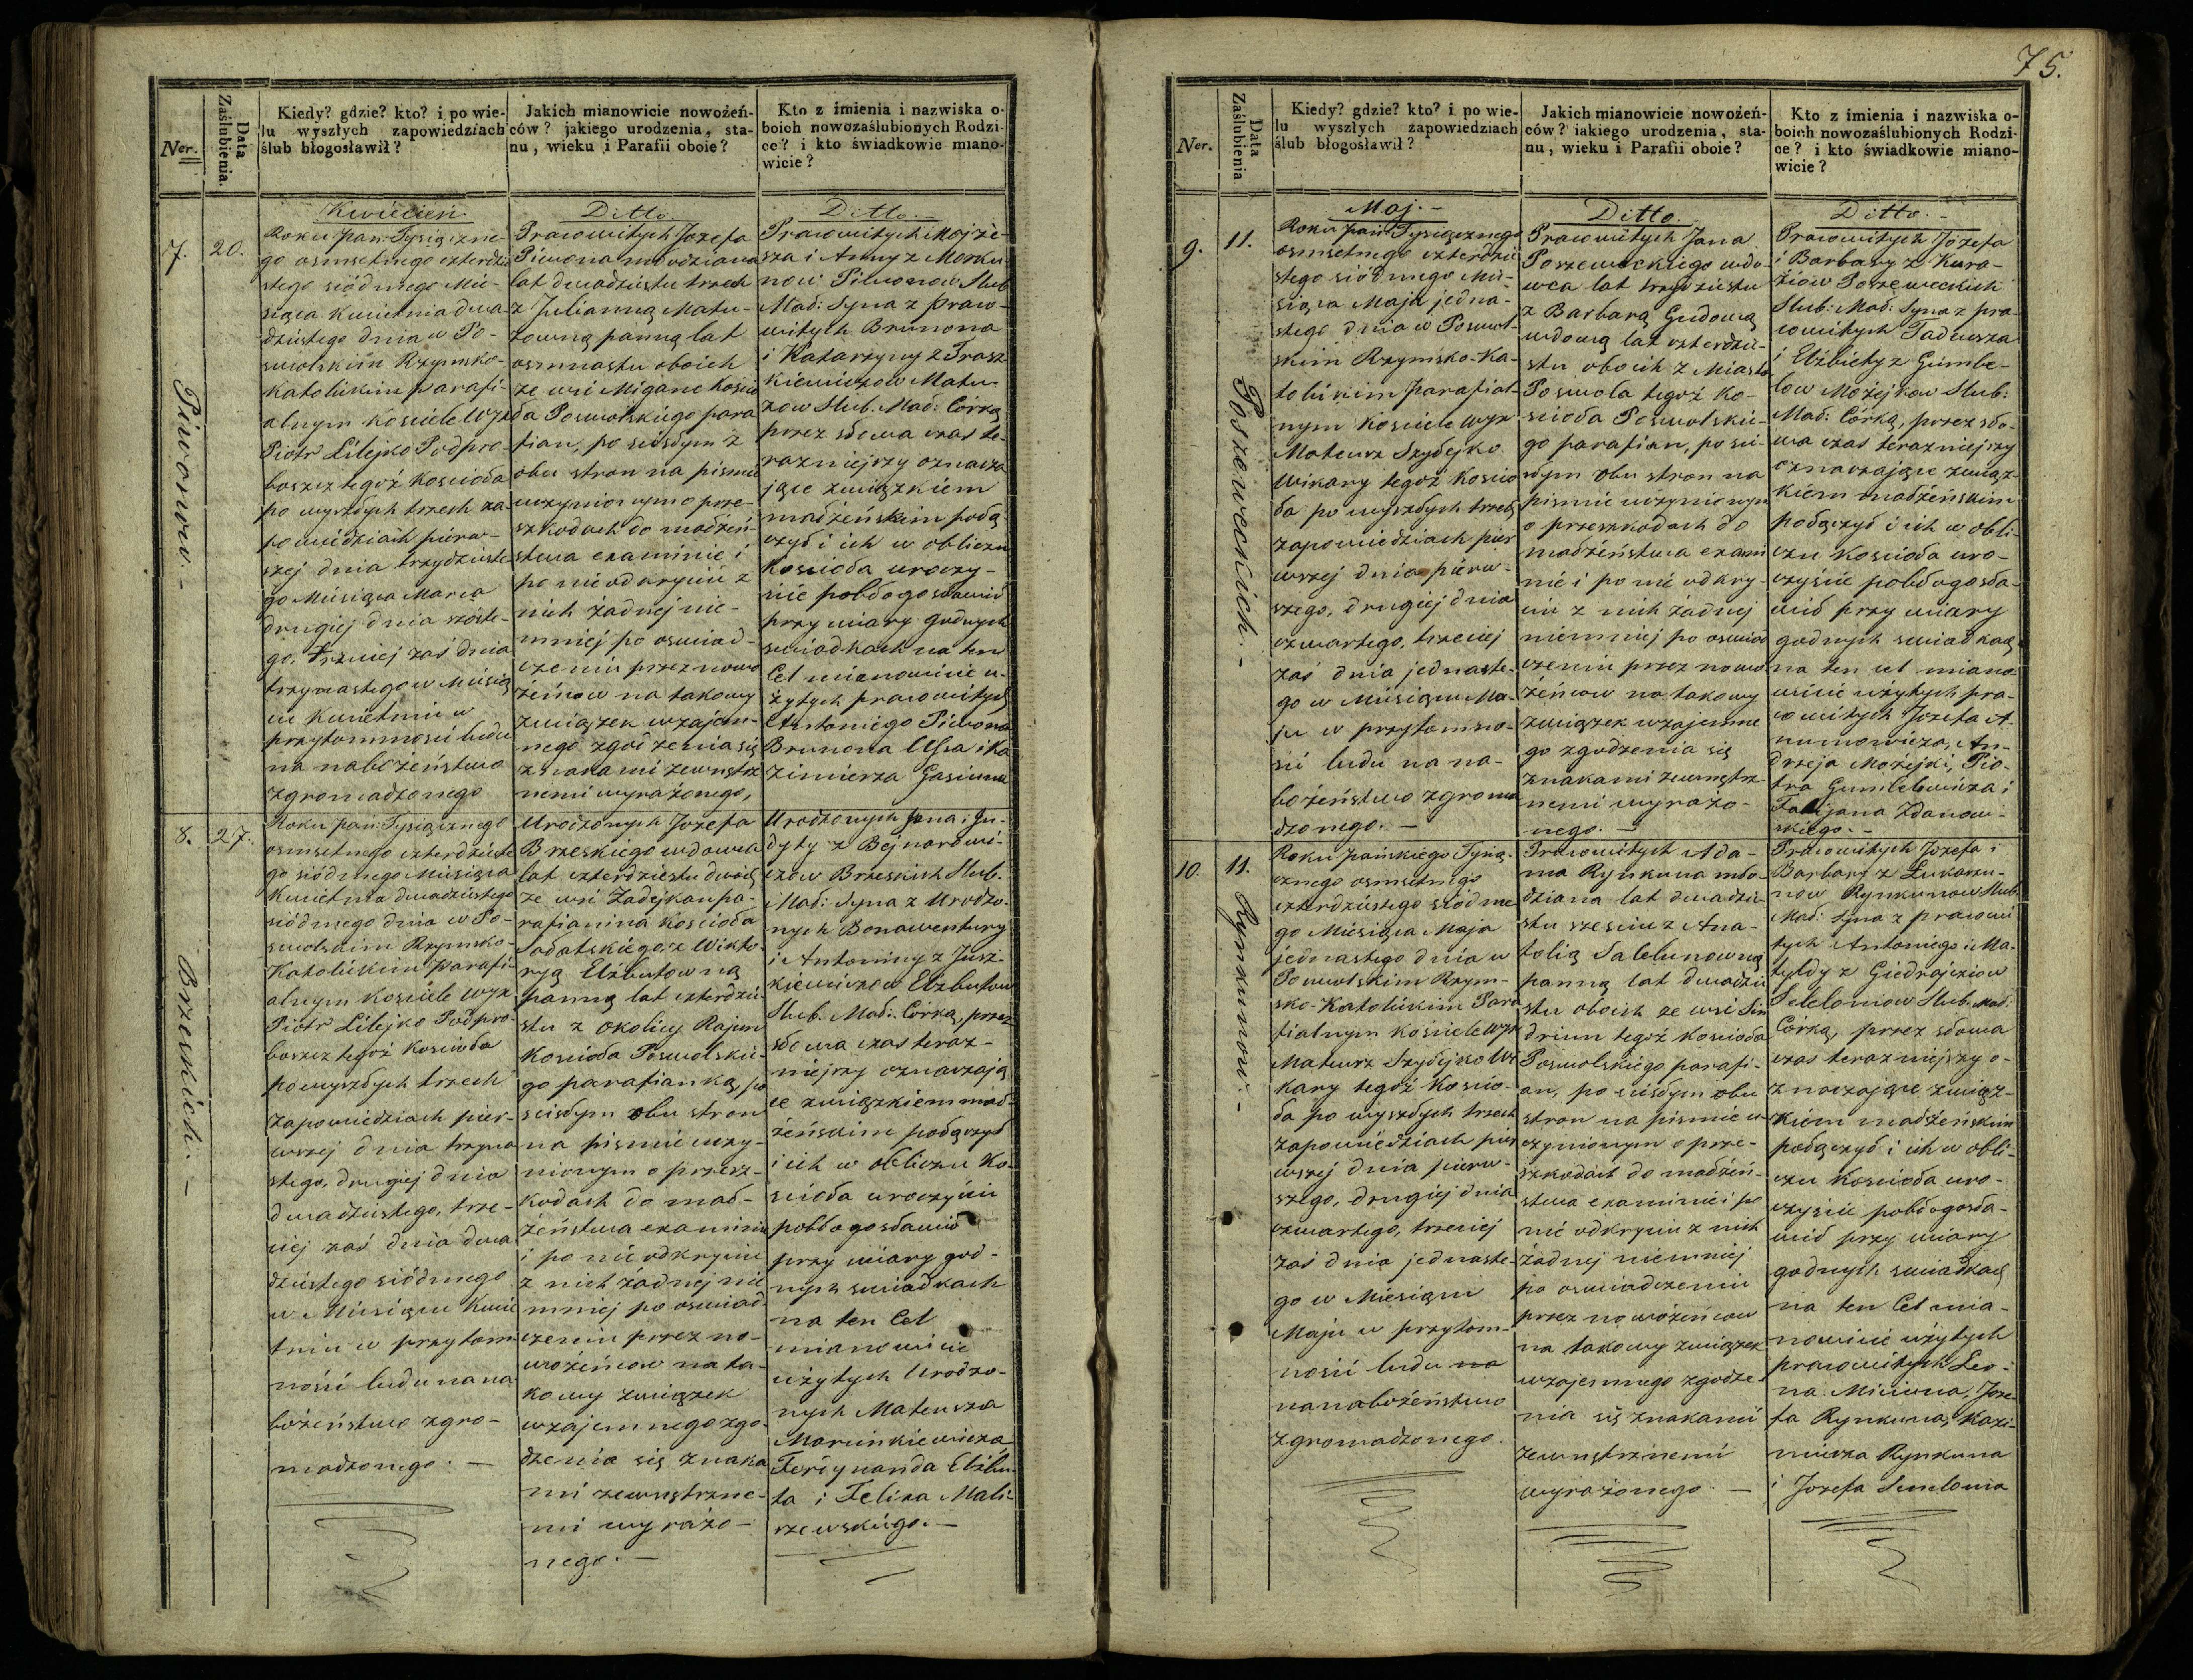 75.
Ner.
Data Zaślubienia.
Kiedy? gdzie? kto? i po wie-
lu wyszłych zapowiedziach
ślub błogosławił?
Jakich mianowicie nowożeń-
ców? jakiego urodzenia, sta-
nu, wieku i Parafii oboie?
Kto z imienia i nazwiska o-
boich nowozaślubionych Rodzi-
ce? i kto świadkowie miano-
wicie?
7.
20.
Piwonow.-
Kwiecień.
Roku pań: Tysiączne-
go osmsetnego czterdzie
stego siódmego Mie-
siąca kwietnia dwa-
dziestego dnia w Po-
swolskim Rzymsko-
Katolickim parafi-
alnym kościele Wyx
Piotr Lilejko Podpro-
boszcz tegoż kościoła
po wyszłych trzech za-
powiedziach pierw-
szej dnia trzydzieste
go Miesiąca Marca
drugiej dnia szóste-
go, trzeciej zaś dnia
trzynastego w Miesią
cu kwietniu w
przytomności ludu
na nabożeństwo
zgromadzonego
Ditto.
Pracowitych Jozefa
Piwona młodziana
lat dwadziestu trzech
z Julianną Matu-
zowną panną lat
osmnastu oboich
ze wsi Migańc kościo
ła Poswolskiego para
fian, po scisłym z
obu stron na pismie
uczynionym o prze-
szkodach do małżeń-
stwa examinie i
po nie odkryciu z
nich żadnej nie-
mniej po oswiad-
czeniu przez nowo
żeńcow na takowy
związek wzajem-
nego zgodzenia się
znakami zewnętrz
nemi wyrażonego,
Ditto.-
Pracowitych Mojże-
sza i Anny z Morku-
now Piwonow Slub
Mał: Syna z praco-
witych Brunona
i Katarzyny z Trasz
kiewiczow Matu-
zow Slub. Mał: Córką
przez słowa czas te-
razniejszy oznacza
jące związkiem
małżeńskim połą
czył i ich w obliczu
Kościoła uroczy-
ście pobłogosławił
przy wiary godnych
swiadkach na ten
Cel mianowicie u-
żytych pracowitych
Antoniego Piwona
Brunona Ussa i Ka
zimierza Gasiuna
8.
27.
Brzeskich.-
Roku pań: Tysiącznego
osmsetnego czterdzieste
go siódmego Miesiąca
Kwietnia dwadziestego
siódmego dnia w Po-
swolskim Rzymsko-
Katolickim Parafi-
alnym kościele Wyx
Piotr Lilejko Podpro-
boszcz tegoż kościoła
po wyszłych trzech
zapowiedziach pier-
wszej dnia trzyna
stego, drugiej dnia
dwadziestego, trze-
ciej zaś dnia dwa
dziestego siódmego
w Miesiącu Kwie
tniu w przytom
ności ludu na na
bożeństwo zgro-
madzonego.-
Urodzonych Jozefa
Brzeskiego wdowca
lat czterdziestu dwóch
ze wsi Zadejkan pa-
rafianina kościoła
Sałatskiego, z Wikto
ryą Elzbutowną
panną lat czterdzie
stu z okolicy Rajun
Kościoła Poswolskie-
go parafianką, po
scisłym obu stron
na pismie uczy-
nionym o przesz-
kodach do mał-
żeństwa examinie
i po nie odkryciu
z nich żadnej nie
mniej po oswiad-
czeniu przez no-
wożeńcow na ta-
kowy związek
wzajemnego zgo-
dzenia się znaka
mi zewnętrzne-
mi wyrażo-
nego.-
Urodzonych Jana i Ju-
dyty z Bejnarowi-
czow Brzeskich Slub.
Mał: Syna z Urodzo-
nych Bonawentury
i Antoniny z Jusz-
kiewiczow Elzbutow
Slub. Mał: Córką, przez
słowa czas teraz-
niejszy oznaczają
ce związkiem mał-
żeńskim połączył
i ich w obliczu Ko-
ścioła uroczyście
pobłogosławił
przy wiary god-
nych swiadkach
na ten Cel
mianowicie
użytych Urodzo-
nych Mateusza
Marcinkiewicza
Ferdynanda Elzbu-
ta i Felixa Mali-
szewskiego.-
Ner.
Data Zaślubienia
Kiedy? gdzie? kto? i po wie-
lu wyszłych zapowiedziach
ślub błogosławił?
Jakich mianowicie nowożeń-
ców? iakiego urodzenia, sta-
nu, wieku i Parafii oboie?
Kto z imienia i nazwiska o-
boich nowozaślubionych Rodzi-
ce? i kto świadkowie miano-
wicie?
9.
11.
Poszeweckich.-
Maj.-
Roku pań: Tysiącznego
osmsetnego czterdzie
stego siódmego Mie-
siąca Maja jedna-
stego dnia w Poswol-
skim Rzymsko-Ka-
tolickim Parafial-
nym Kościele Wyx
Mateusz Szydejko
Wikary tegoż Kościo
ła po wyszłych trzech
zapowiedziach pier
wszej dnia pierw-
szego, drugiej dnia
czwartego, trzeciej
zaś dnia jednaste-
go w Miesiącu Ma-
ju w przytomno-
ści ludu na na-
bożeństwo zgroma
dzonego.-
Ditto.
Pracowitych Jana
Poszeweckiego wdo-
wca lat trzydziestu
z Barbarą Gudową
wdową lat czterdzie-
stu oboich z Miasta
Poswola tegoż Ko-
ścioła Poswolskie-
go parafian, po sci-
słym obu stron na
pismie uczynionym
o przeszkodach do
małżeństwa exami
nie i po nie odkry-
ciu z nich żadnej
niemniej po oswiad
czeniu przez nowo
żeńcow na takowy
związek wzajemne
go zgodzenia się
znakami zewnętrz-
nemi wyrażo-
nego.-
Ditto.-
Pracowitych Józefa
i Barbary z Kura-
ziow Poszeweckich
Slub: Mał: Syna z pra-
cowitych Tadeusza
i Elżbiety z Gumbe-
low Możejkow Slub:
Mał: Córką, przez sło-
wa czas teraznieiszy
oznaczające związ-
kiem małżeńskim
połączył i ich w obli-
czu Kościoła uro-
czyście pobłogosła-
wił przy wiary
godnych swiadkach
na ten cel miano-
wicie użytych pra-
cowitych Jozefa A-
numowicza, An-
drzeja Możejki, Pio-
tra Gumbelewicza i
Fabijana Zdanow-
skiego.-
10.
11.
Rynkunow.-
Roku pańskiego Tysią-
cznego osmsetnego
czterdziestego siódme
go Miesiąca Maja
jednastego dnia w
Poswolskim Rzym-
sko-Katolickim Para
fialnym kościele Wyx
Mateusz Szydejko Wi-
kary tegoż Kościo-
ła po wyszłych trzech
zapowiedziach pier
wszej dnia pierw-
szego, drugiej dnia
czwartego, trzeciej
zaś dnia jednaste-
go w Miesiącu
Maju w przytom-
ności ludu na
na nabożeństwo
zgromadzonego.
Pracowitych Ada-
ma Rynkuna mło-
dziana lat dwadzie
stu sześciu z Ana-
tolią Salelunowną
panną lat dwadzie
stu oboich ze wsi Sin
driun tegoż Kościoła
Poswolskiego parafi-
an, po scisłym obu
stron na pismie u-
czynionym o prze-
szkodach do małżeń-
stwa examinie i po
nie odkryciu z nich
żadnej niemniej
po oswiadczeniu
przez nowożeńcow
na takowy związek
wzajemnego zgodze-
nia się znakami
zewnętrznemi
wyrażonego.-
Pracowitych Jozefa i
Barbary z Lukaszu-
now Rynkunow Slub.
Mał: Syna z pracowi
tych Antoniego i Ma-
tyldy z Giedrojciow
Slub. Mał:
Córką, przez słowa
czas teraznieiszy o-
znaczające związ-
kiem małżeńskim
połączył i ich w obli-
czu Kościoła uro-
czyście pobłogosła-
wił przy wiary
godnych swiadkach
na ten Cel mia-
nowicie użytych
pracowitych Leo-
na Miciuna, Joze-
fa Rynkuna, Kazi-
mierza Rynkuna
i Jozefa